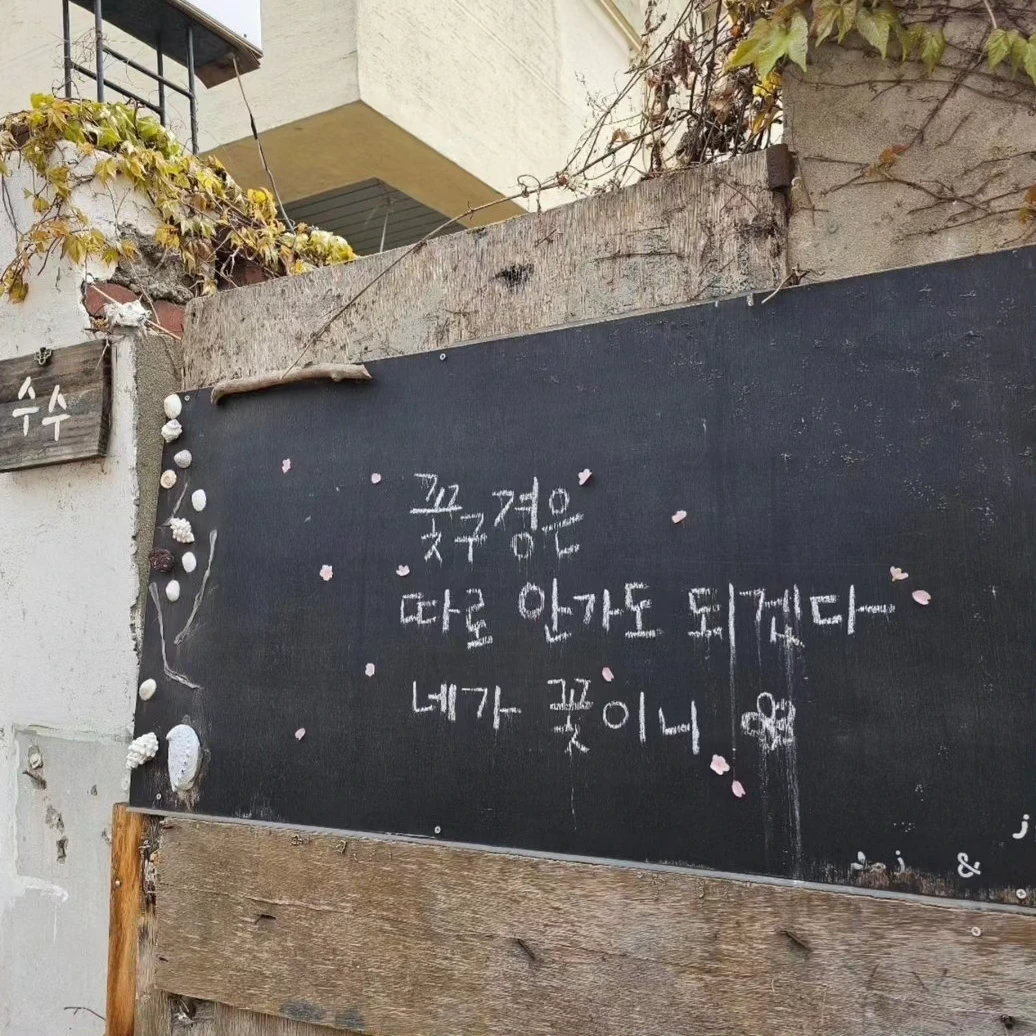 수수
꽃구경은
따로 안가도 되겠다
네가 꽃이니
j
&